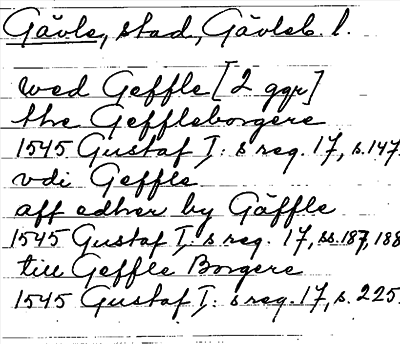 Gävle, stad, Gävleb. l.
wed Geffle [2 ggr]
the Geffleborgere
1545 Gustaf I: s reg. 17, s. 147.
vdi Geffle
aff edher by Gäffle
1545 Gustaf I: s reg. 17, ss. 187, 188
till Geffle Borgere
1545 Gustaf I: s reg. 17, s. 225.